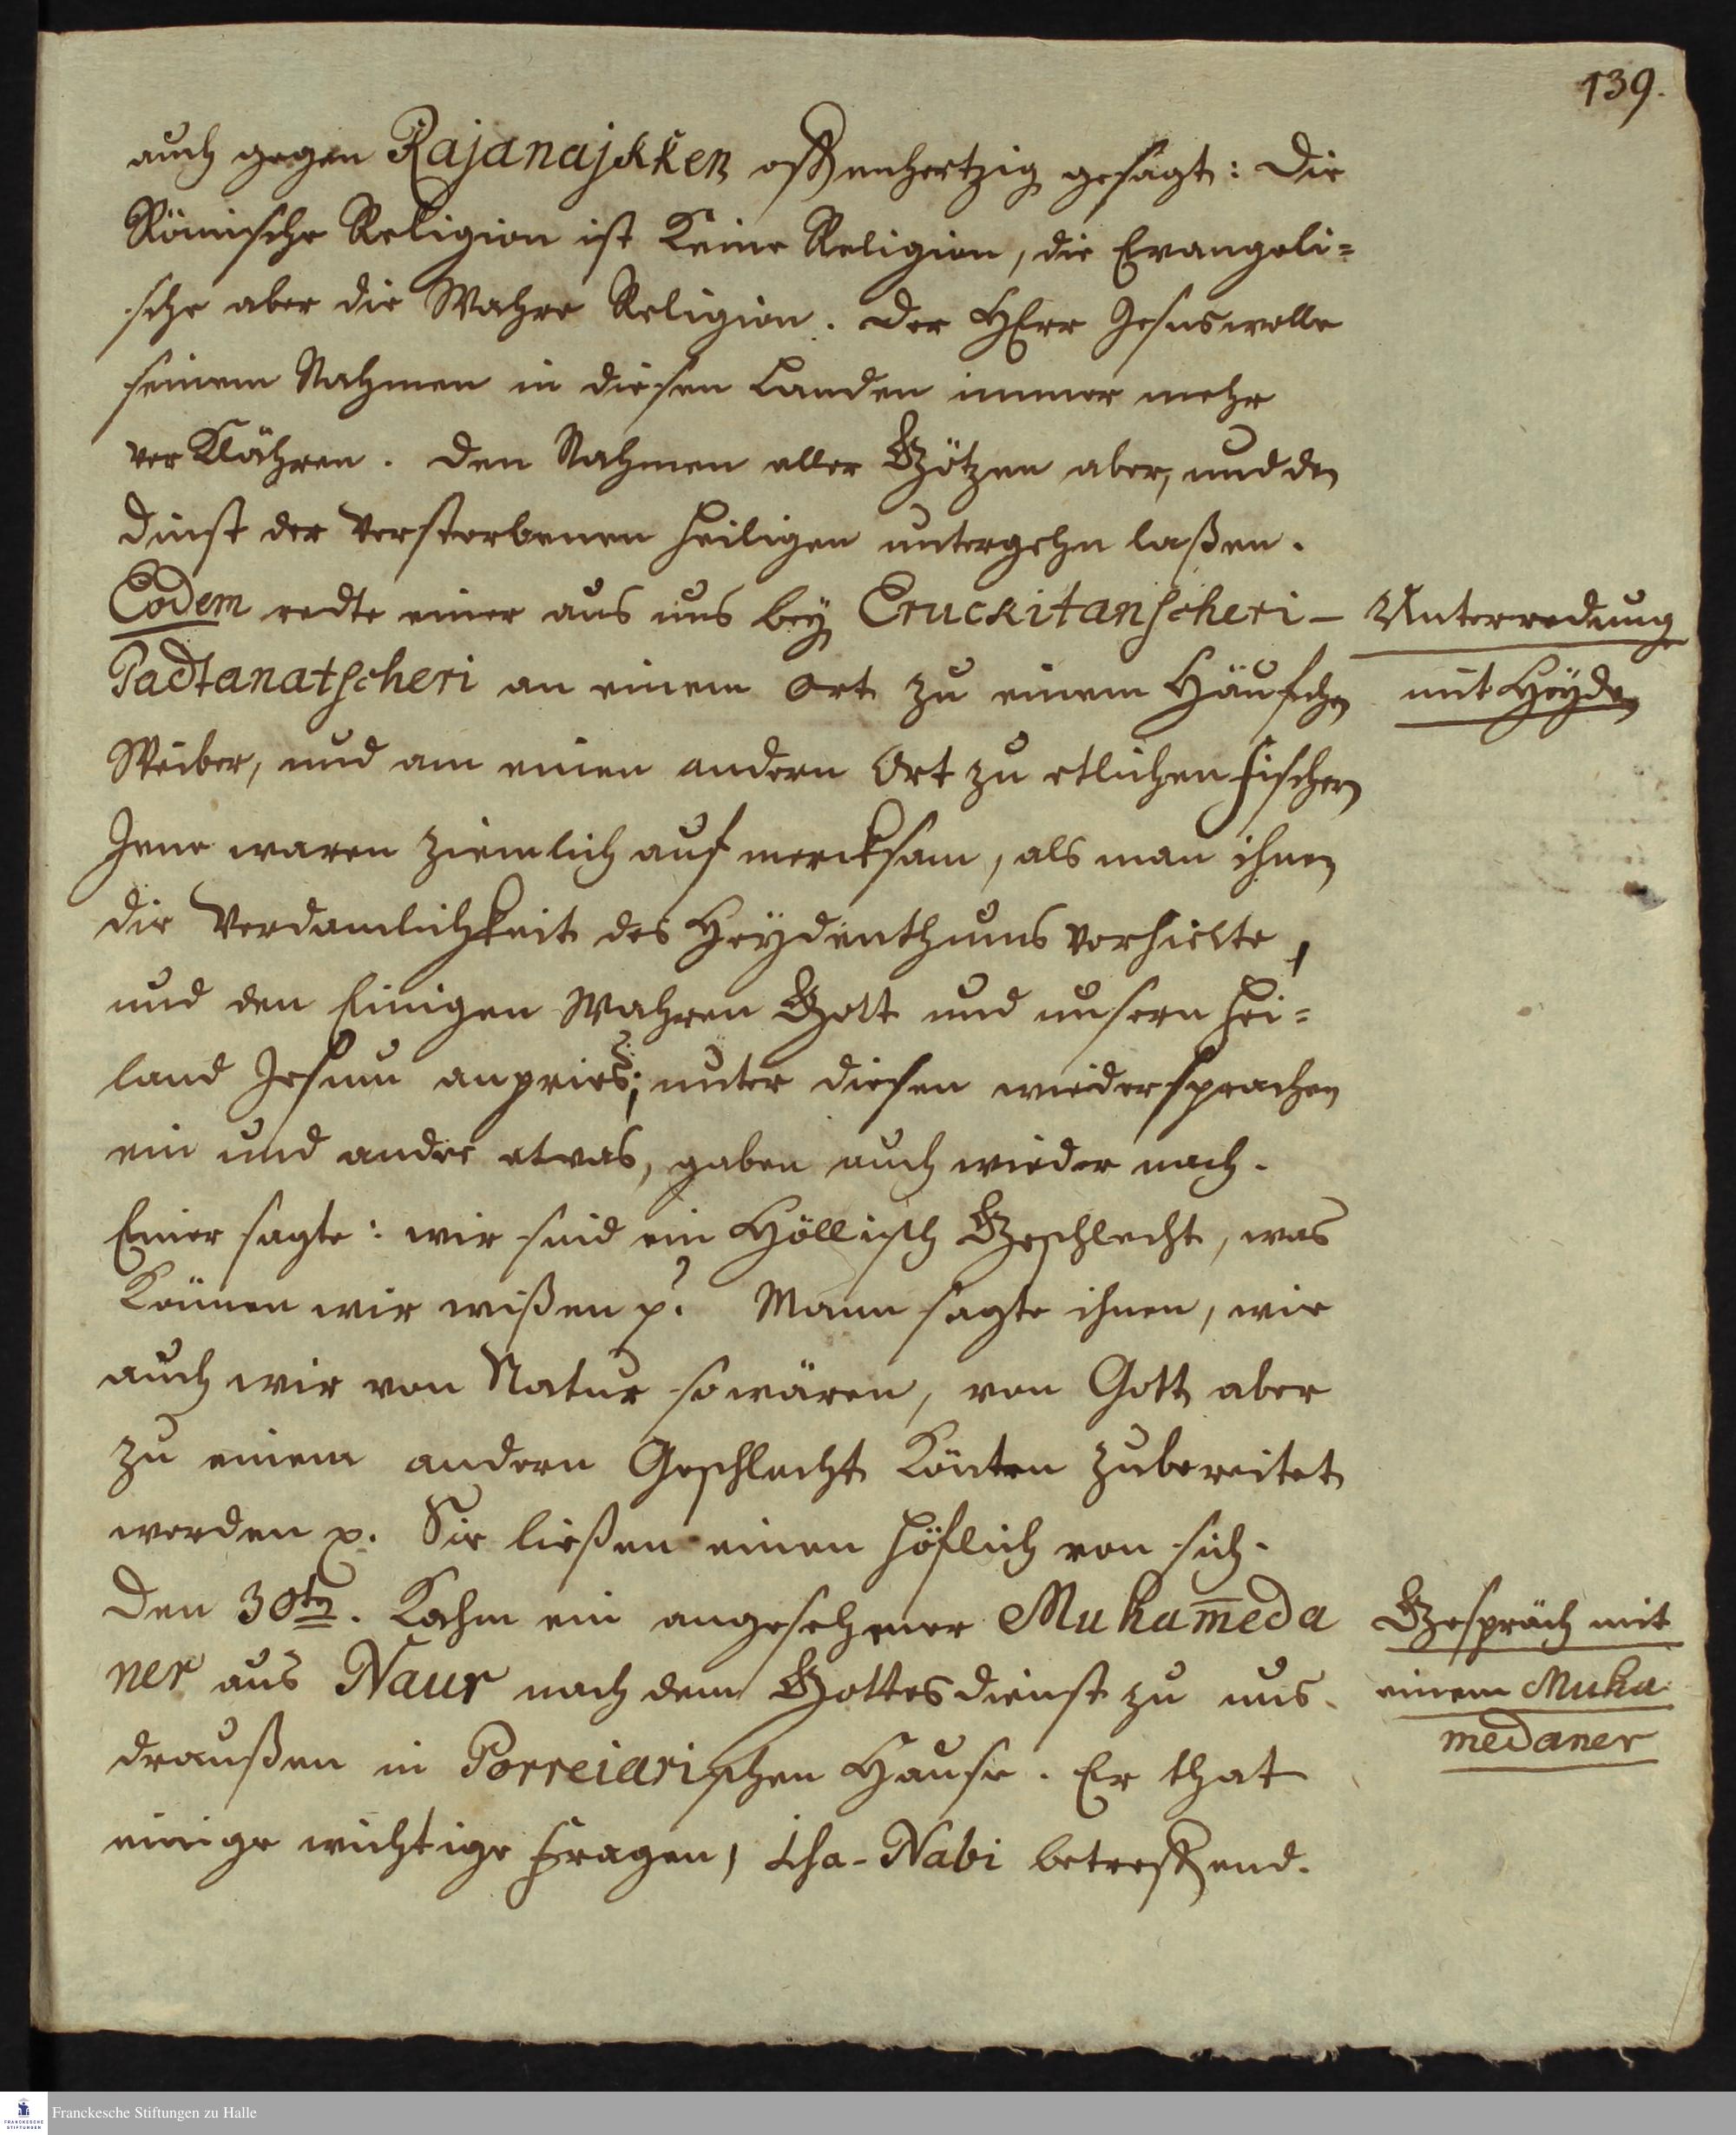 139.
auch gegen Rajanajkken offenhertzig gesagt: Die
Römische Religion ist Keine Religion, die Evangeli=
sche aber die Wahre Religion. Der HErr Jesus wolle
seinem Nahmen in diesen Landen immer mehr
verKlähren. Den Nahmen aller Götzen aber, und den
Dinst der Verstorbenen Heiligen untergehn laßen.
Eodem redte einer aus uns bey Eruckitanscheri-
Unterredung
Padtanatscheri an einem Ort zu einem Häufchen
mit Heyden
Weiber, und am einen andern Ort zu etlichen Fischern
Jene waren ziemlich auf mercksam, als man ihnen
die Verdamlichkeit des Heydenthums vorhielte,
und den Einigen Wahren Gott und unsern Hei=
land Jesum anpries; unter diesen wiedersprachen
ein und andre etwas, gaben auch wieder nach.
Einer sagte: wir sind ein Höllisch Geschlecht, was
Können wir wißen p? Mann sagte ihnen, wie
auch wir von Natur so wären, von Gott aber
zu einem andern Geschlecht Könten zubereitet
werden p. Sie ließen einen höflich von sich.
Den 30ten. Kahm ein angesehener Muham̅eda
Gespräch mit
ner aus Naur nach dem Gottesdienst zu uns
einem Muha
draußen in Porreiarischen Hause. Er that
medaner
einige wichtige Fragen, Isa-Nabi betreffend.
Franckesche Stiftungen zu Halle